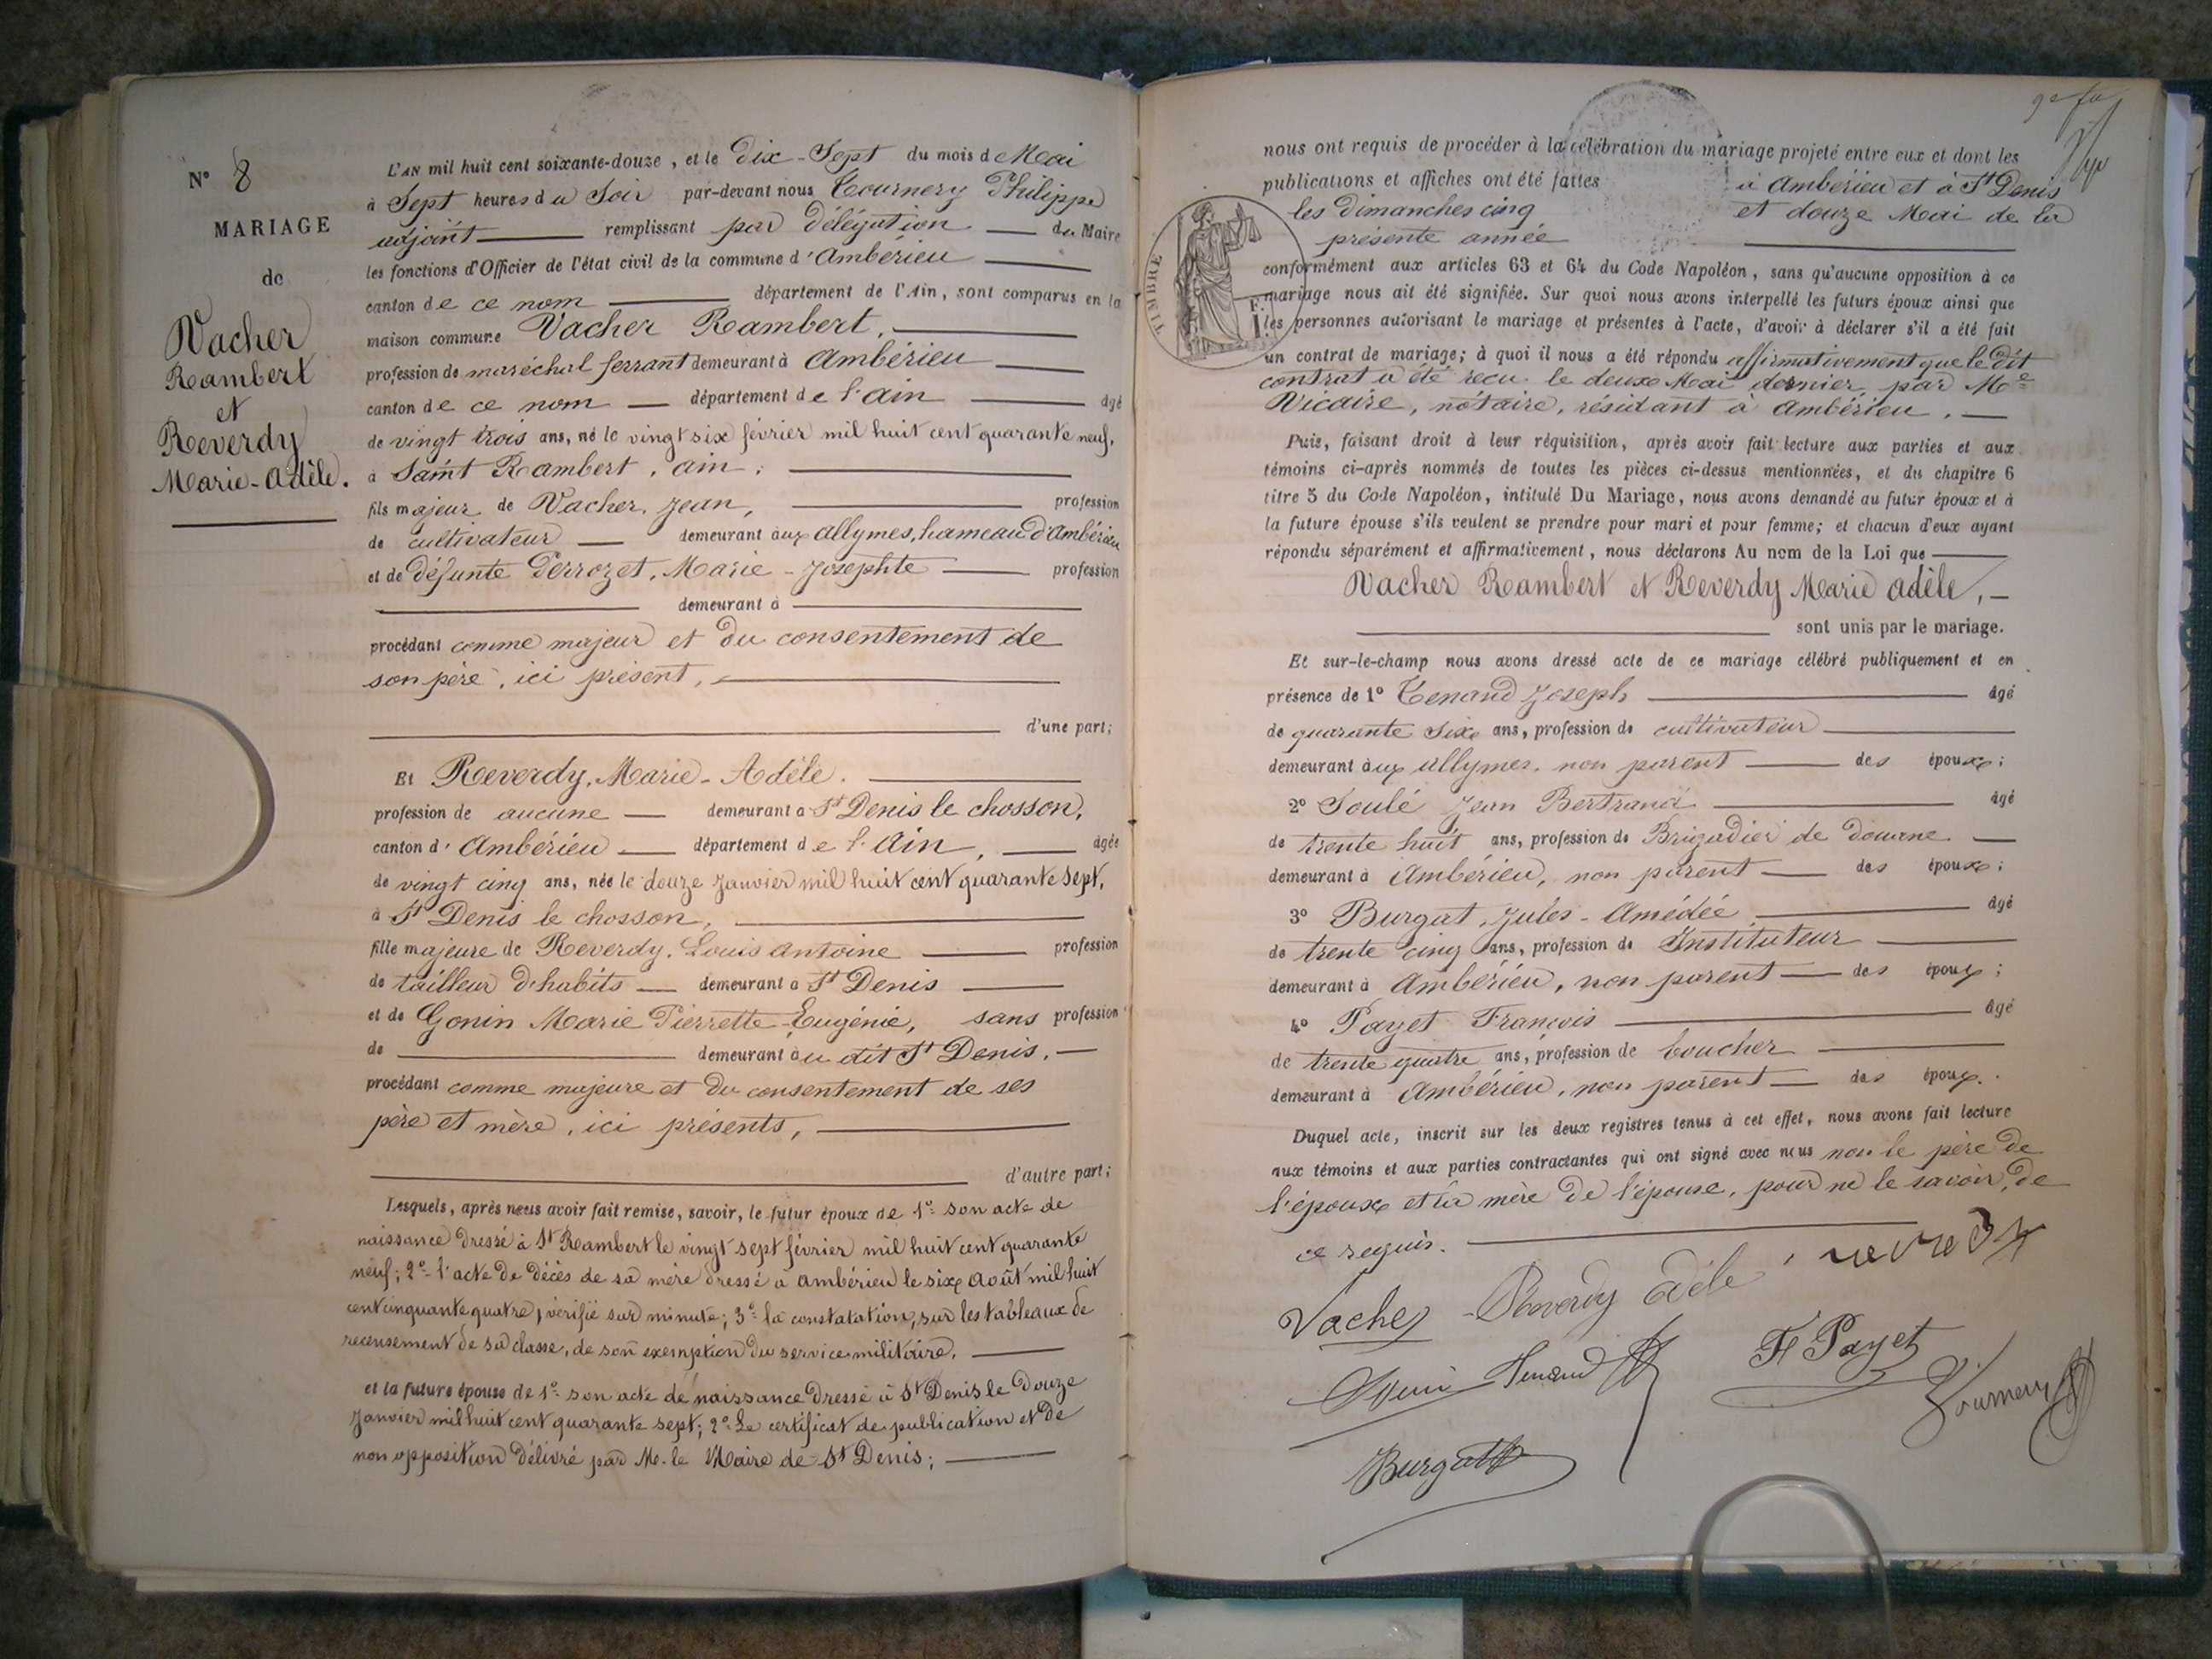 N° 8
MARIAGE
de
Vacher
Rambert
et
Reverdy
Marie-Adèle.
L'AN mil huit cent soixante-douze, et le Dix-Sept du mois de Mai
à Sept heures du Soir par-devant nous Tournery Philippe
adjoint remplissant par Délégation du Maire
les fonctions d'Officier de l'état civil de la commune d'Ambérieu
canton de ce nom département de l'Ain, sont comparus en la
maison commune Vacher Rambert,
profession de maréchal ferrant demeurant à Ambérieu
canton de ce nom département de l'Ain âgé
de vingt trois ans, né le vingt six février mil huit cent quarante neuf,
à Saint Rambert, ain;
fils majeur de Vacher, Jean, profession
de cultivateur demeurant aux allymes, hameau d'Ambérieu
et de défunte Perrozet, Marie-Josephte profession
demeurant à
procédant comme majeur et du consentement de
son père, ici présent,
d'une part;
Et Reverdy, Marie-Adèle.
profession de aucune demeurant à St Denis le chosson,
canton d'Ambérieu département de l'Ain, âgée
de vingt cinq ans, née le douze Janvier mil huit cent quarante sept,
à St Denis le chosson,
fille majeure de Reverdy, Louis Antoine profession
de tailleur d'habits demeurant à St Denis
et de Gonin Marie Pierrette-Eugénie, sans profession
de demeurant au dit St Denis.
procédant comme majeure et du consentement de ses
père et mère, ici présents,
d'autre part;
Lesquels, après nous avoir fait remise, savoir, le futur époux de 1°: son acte de
naissance dressé à St Rambert le vingt sept février mil huit cent quarante
neuf; 2°- l'acte de décès de sa mère dressé à ambérieu le six Août mil huit
cent cinquante quatre, vérifié sur minute; 3°: la constatation, sur les tableaux de
recensement de sa classe, de son exemption du service militaire.
et la future épouse de 1°: son acte de naissance dressé à St Denis le Douze
Janvier mil huit cent quarante sept; 2°: Le certificat de publication et de
non opposition délivré par M. le Maire de St Denis;
nous ont requis de procéder à la célébration du mariage projeté entre eux et dont les
publications et affiches ont été faites à Ambérieu et à St Denis
les Dimanches cinq et douze Mai de la
présente année
conformément aux articles 63 et 64 du Code Napoléon, sans qu'aucune opposition à ce
mariage nous ait été signifiée. Sur quoi nous avons interpellé les futurs époux ainsi que
les personnes autorisant le mariage et présentes à l'acte, d'avoir à déclarer s'il a été fait
un contrat de mariage; à quoi il nous a été répondu affirmativement que le dit
contrat a été reçu le deux Mai dernier par Me
Vicaire, notaire, résidant à Ambérieu.
TIMBRE
1 F.
Puis, faisant droit à leur réquisition, après avoir fait lecture aux parties et aux
témoins ci-après nommés de toutes les pièces ci-dessus mentionnées, et du chapitre 6
titre 5 du Code Napoléon, intitulé Du Mariage, nous avons demandé au futur époux et à
la future épouse s'ils veulent se prendre pour mari et pour femme; et chacun d'eux ayant
répondu séparément et affirmativement, nous déclarons Au nom de la Loi que
Vacher Rambert et Reverdy Marie Adèle,
sont unis par le mariage.
Et sur-le-champ nous avons dressé acte de ce mariage célébré publiquement et en
présence de 1° Tenand Joseph âgé
de quarante six ans, profession de cultivateur
demeurant aux allymes, non parent des époux;
2° Soulé Jean Bertrand âgé
de trente huit ans, profession de Brigadier de douane
demeurant à Ambérieu, non parent des époux;
3° Burgat, Jules-Amédée âgé
de trente cinq ans, profession de Instituteur
demeurant à Ambérieu, non parent des époux;
4° Payet François âgé
de trente quatre ans, profession de boucher
demeurant à Ambérieu, non parent des époux.
Duquel acte, inscrit sur les deux registres tenus à cet effet, nous avons fait lecture
aux témoins et aux parties contractantes qui ont signé avec nous non le père de
l'époux et la mère de l'épouse, pour ne le savoir, de
ce requis.
Vacher Reverdy Adèle reverdy
Tenand Fs Payet
Tournery
Burgat